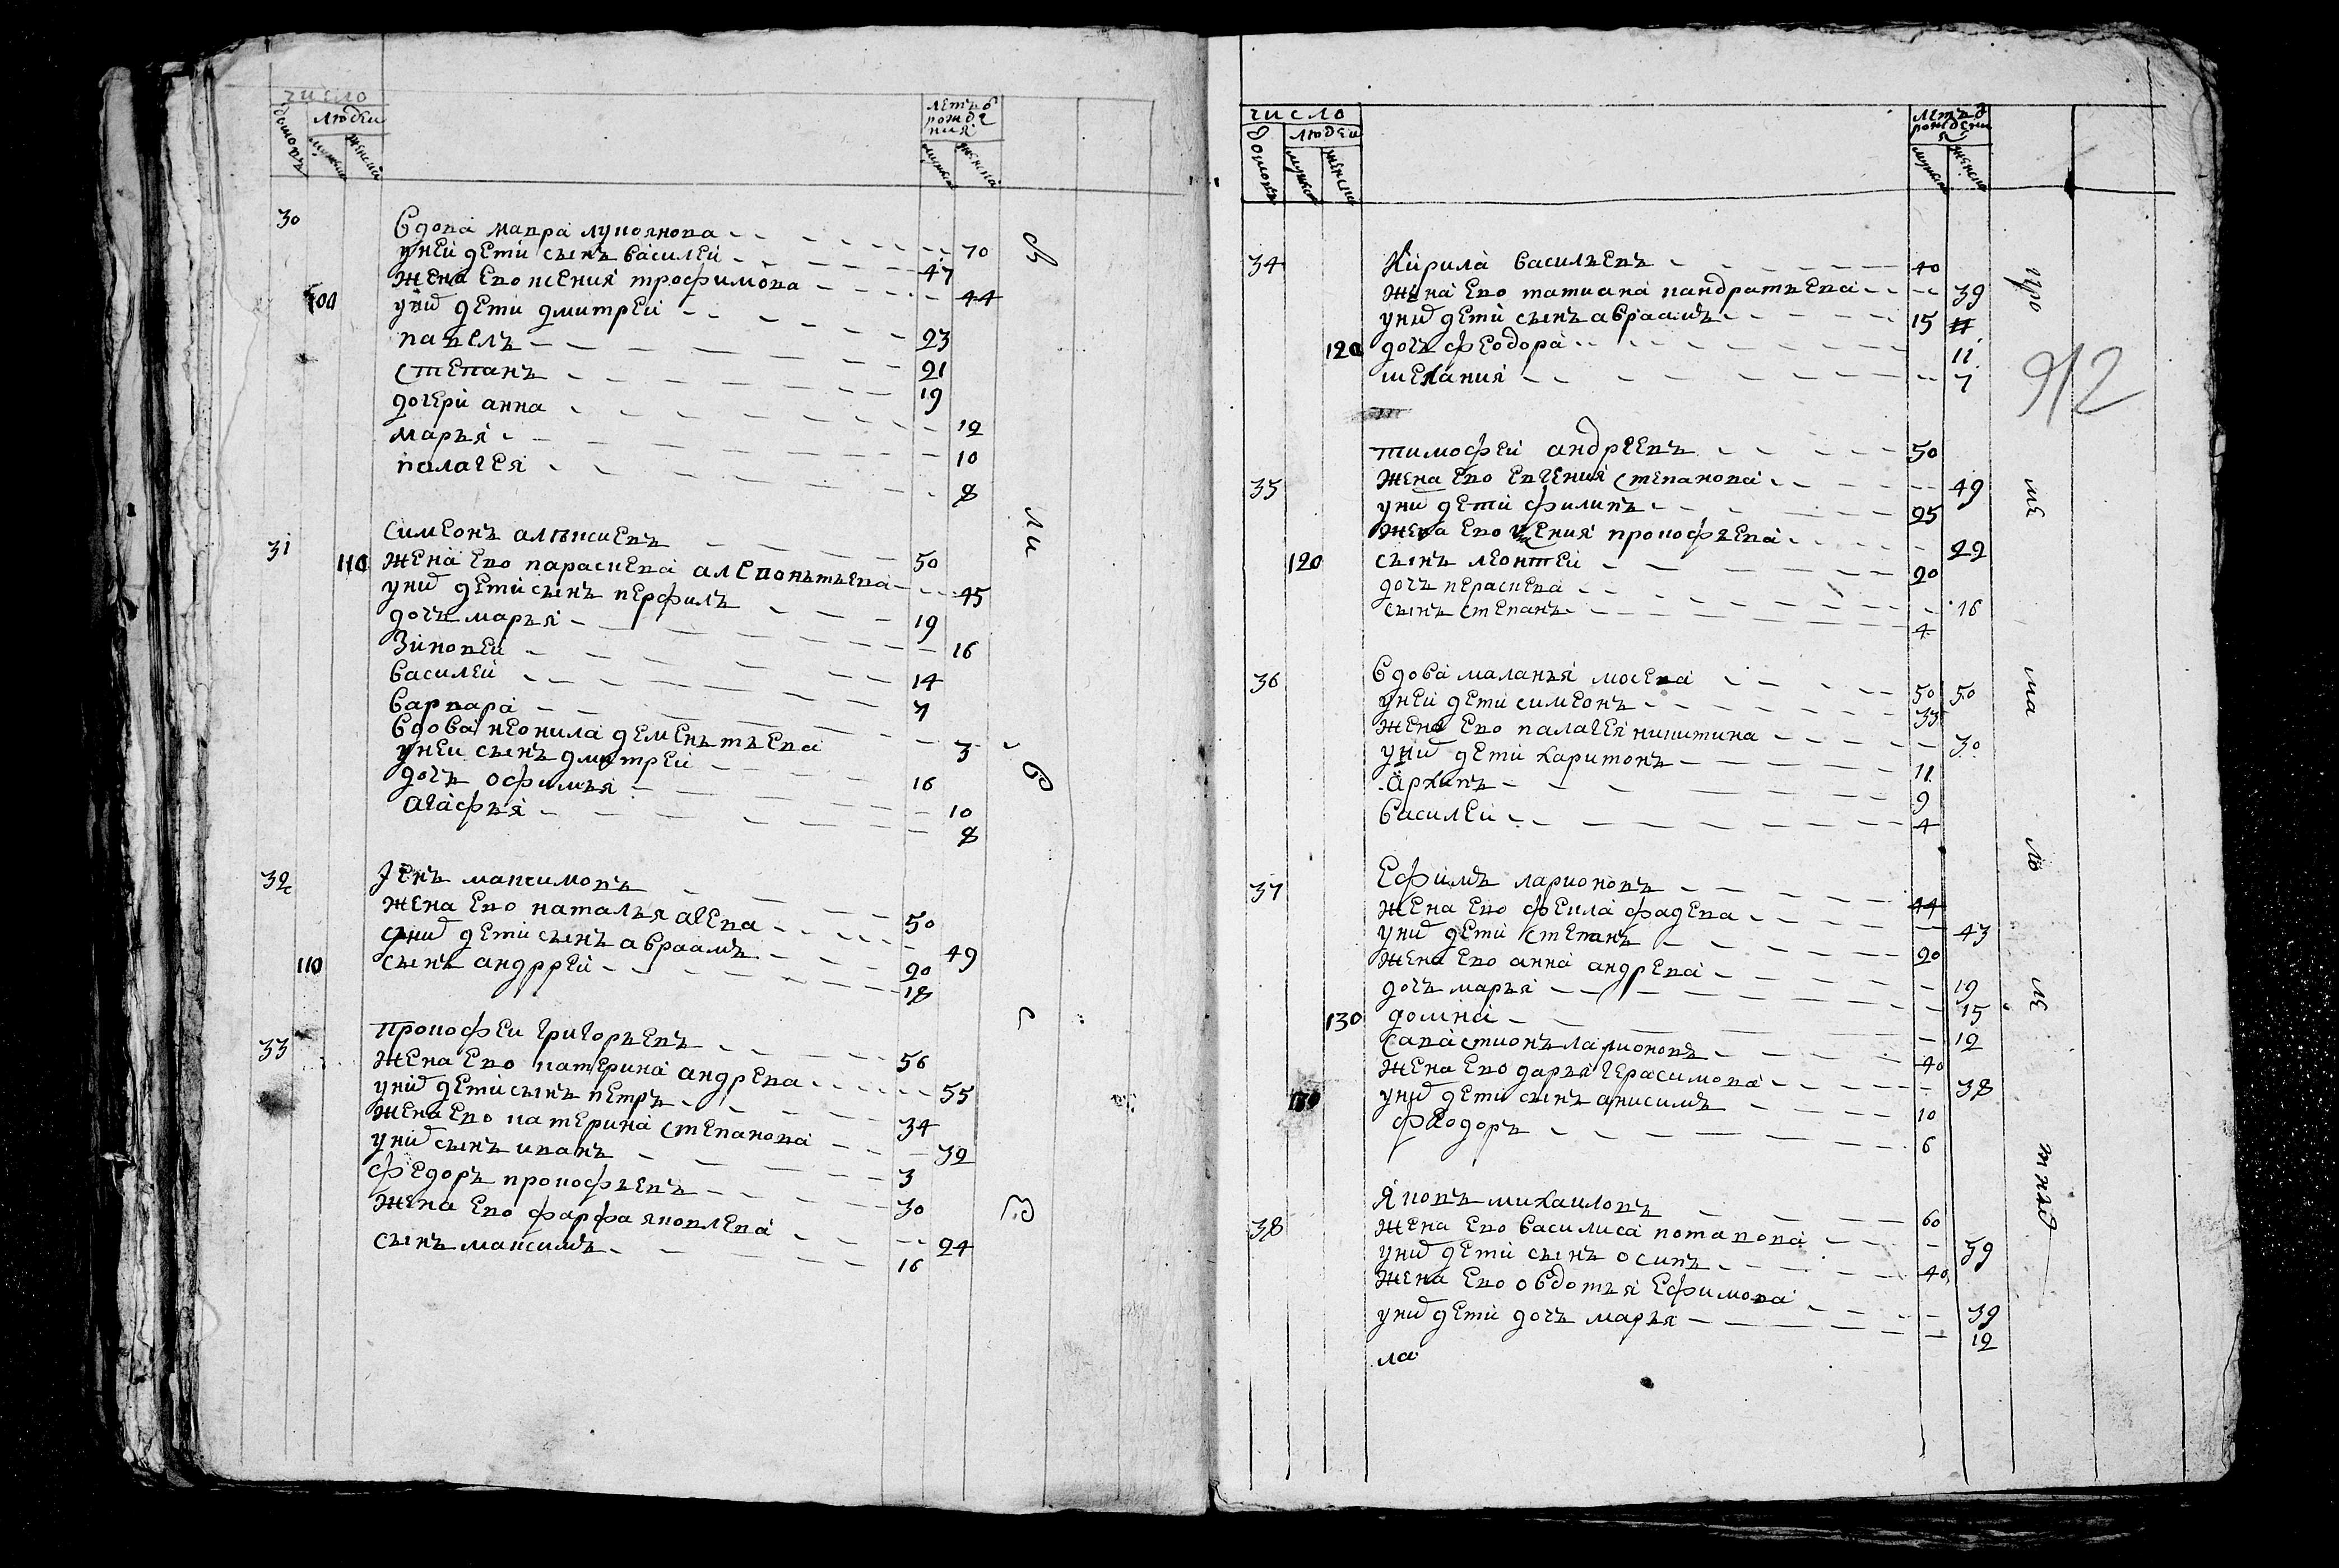 число
домовъ людеи
мужеска женска
летъ о
рожде
ния
мужеска женска
30 Вдова мавра лукоянова 70
унеи дети сынъ василеи 47
жена ево ксения трофимова 44
100 уних дети дмитреи
павелъ 23
степанъ 21
дочери анна 19
марья 12
палагея 10
8
31 симеонъ алексиевъ 50
110 жена ево параскева
уних дети сынъ перфилъ 45
дочь марья 19
зиновеи 16
василеи 14
варвара 7
вдова неонила дементьева 3
унеи сынъ дмитреи
дочь офимья 16
агафья 10
8
32 максимовъ
жена ево наталья агева 50
уних дети сынъ авраамъ 49
110 сынъ андррей 20
18
33 прокофеи григорьевъ 56
жена ево катерина андрева 55
уних дети сынъ петръ
жена ево катерина степанова 34
уних сынъ иванъ 32
федоръ прокофьевъ 3
жена ево фарфа яковлева 30
сынъ максимъ 24
16
ли
в
с
число
домовъ людеи
мужеска женска
летъ о
рождени
я
мужеска женска
34 Кирила василъевъ 40
жена ево татиана кандратьева 39
уних дети сынъ авраамъ 15
120 дочь феодора 11
мелания 7
912
тимофеи андреевъ 50
35 жена ево евгения степанова 49
уних дети филипъ 25
жена ево ксения прокофьева 22
120 сынъ леонтеи 20
дочь пераскева 16
сынъ степанъ 4
36 вдова маланья мосева 50 50
унеи дети симеонъ 33
жена ево палагея никитина 30
уних дети харитонъ 11
архипъ 9
василеи 4
37 Ефимъ ларионовъ 44
жена ево фекла фадева 43
уних дети степанъ 20
жена ево анна андрева 19
дочь марья 15
130 домна 12
савастионъ ларионовъ 40
жена ево дарья герасимова 38
130 уних дети сынъ анисимъ 10
феодоръ 6
38 Яковъ михаиловъ 60
жена ево василиса потапова 59
уних дети сынъ осипъ 40
жена ево овдотья ефимова 39
уних дети дочь марья 12
ла
про
ме
ма
ле